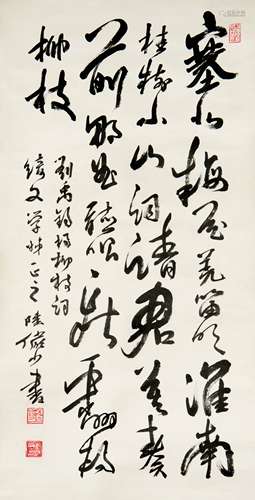 塞北梅花羌笛吹淮南
桂树小山词请君莫奏
前朝曲听唱新翻杨
柳枝
刘禹锡杨柳枝词
绮文学妹正之 陆俨少书